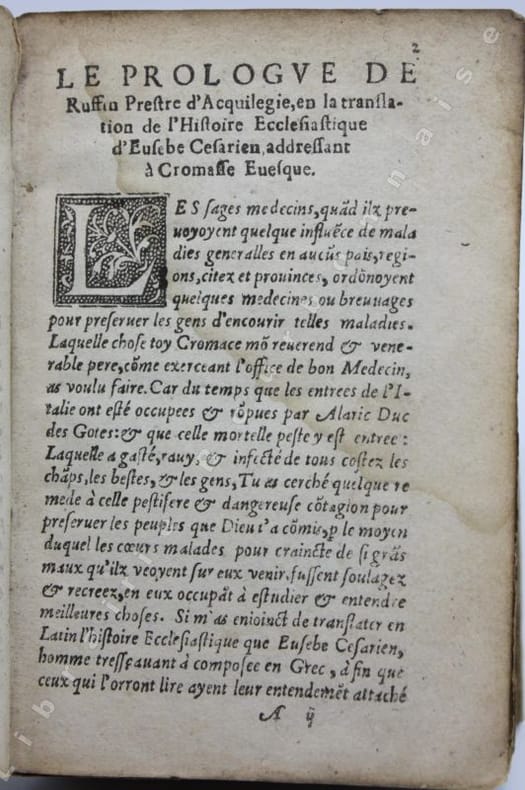 2
LE PROLOGVE DE
Ruffin Prestre d'Acquilegie, en la transla-
tion de l'Histoire Ecclesiastique
d'Eusebe Cesarien, addressant
à Cromasse Euesque.
LES sages medecins, quãd ilz pre-
uoyoyent quelque influẽce de mala
dies generalles en aucũs païs, regi-
ons, citez et prouinces, ordõnoyent
quelques medecines ou breuuages
pour preseruer les gens d'encourir telles maladies.
Laquelle chose toy Cromace mõ reuerend & vene-
rable pere, cõme exerceant l'office de bon Medecin,
as voulu faire. Car du temps que les entrees de l'I-
talie ont esté occupees & rõpues par Alaric Duc
des Gotes: & que celle mortelle peste y est entree:
Laquelle a gasté, rauy, & infecté de tous costez les
chãps, les bestes, & les gens, Tu as cerché quelque re
mede à celle pestifere & dangereuse cõtagion pour
preseruer les peuples que Dieu t'a cõmis, p le moyen
duquel les cœurs malades pour craincte de si grãs
maux qu'ilz veoyent sur eux venir, fussent soulagez
& recreez, en eux occupãt à estudier & entendre
meilleures choses. Si m'as enioinct de translater en
Latin l'histoire Ecclesiastique que Eusebe Cesarien,
homme tressçauant à composee en Grec, à fin que
ceux qui l'orront lire ayent leur entendemẽt attaché
A ij